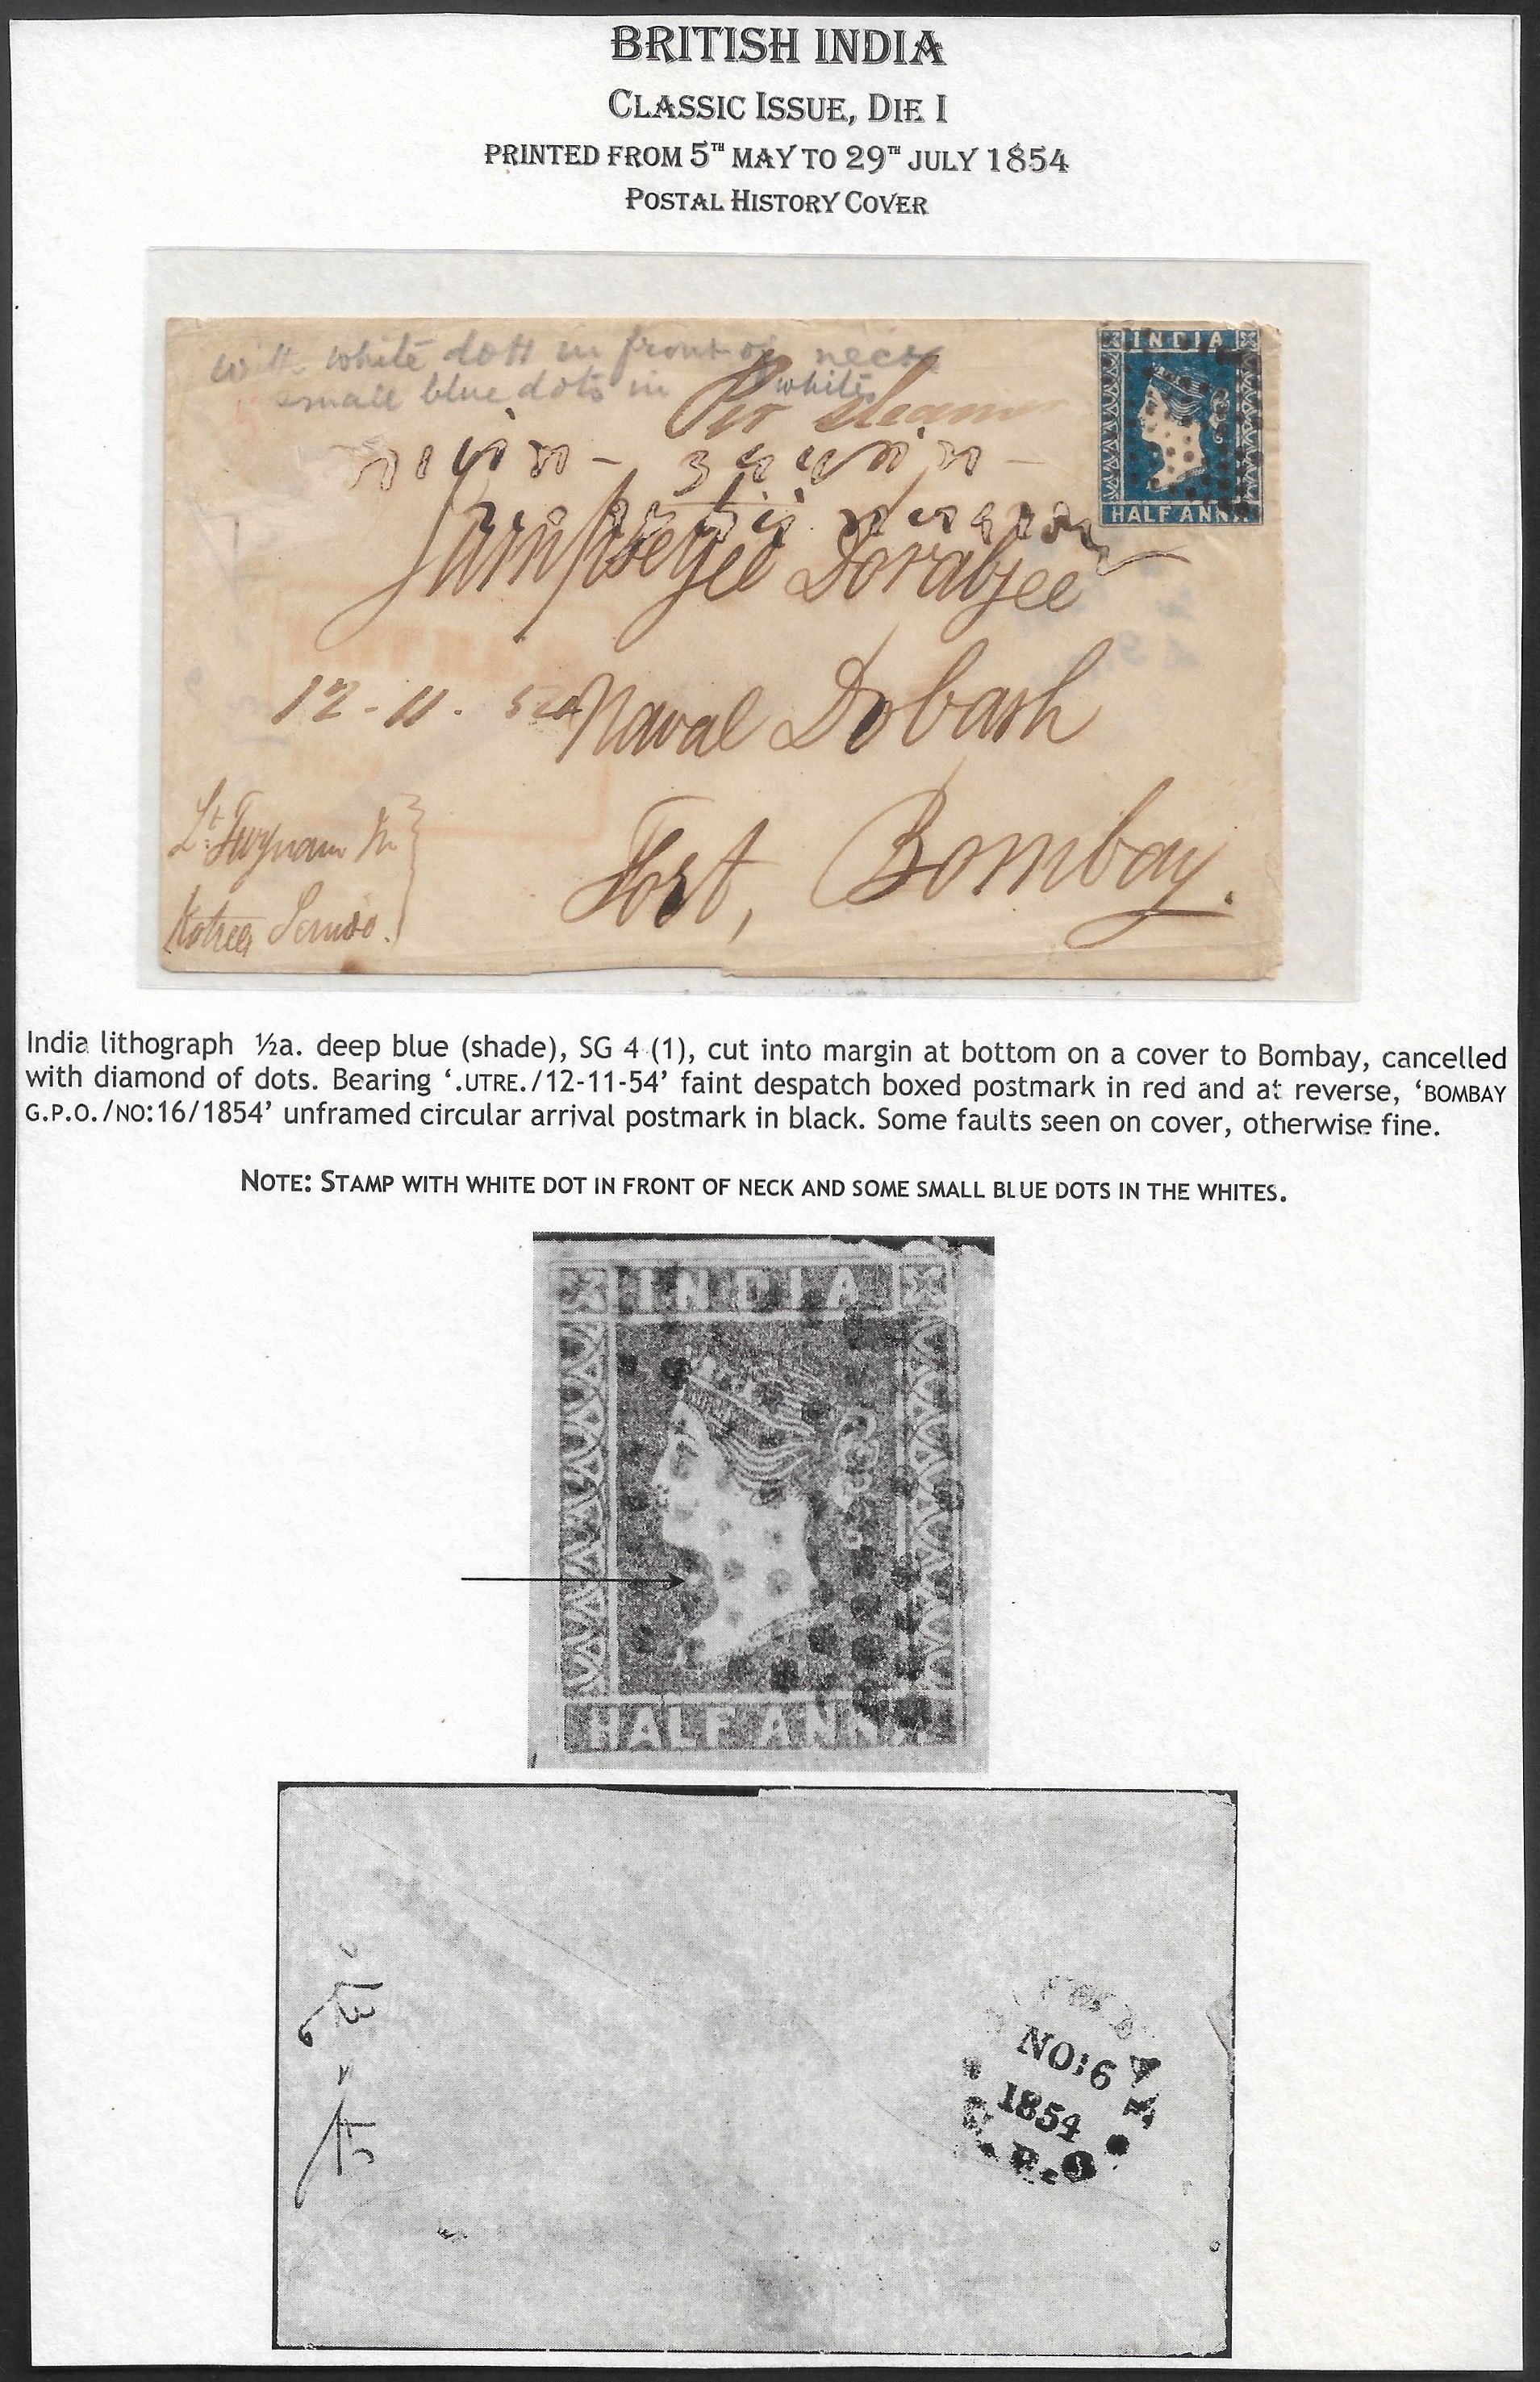 BRITISH INDIA
CLASSIC ISSUE, DIE I
PRINTED FROM 5TH MAY TO 29TH JULY 1854
POSTAL HISTORY COVER
With white dott in front of neck
small blue dots in whites
Per Steamer
INDIA
HALF ANNA
Jamsetjee Dorabjee
12-11. 54
Naval Dobash
Fort, Bombay.
Lt. Twynam
India lithograph ½a. deep blue (shade), SG 4 (1), cut into margin at bottom on a cover to Bombay, cancelled
with diamond of dots. Bearing ‘.UTRE./12-11-54’ faint despatch boxed postmark in red and at reverse, ‘BOMBAY
G.P.O./NO:16/1854’ unframed circular arrival postmark in black. Some faults seen on cover, otherwise fine.
NOTE: STAMP WITH WHITE DOT IN FRONT OF NECK AND SOME SMALL BLUE DOTS IN THE WHITES.
INDIA
HALF ANNA
BOMBAY
NO:16
1854
G.P.O